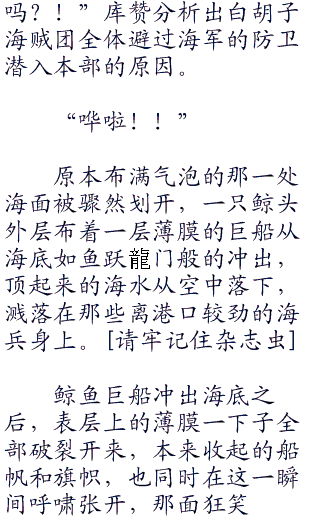 吗？！”库赞分析出白胡子
海贼团全体避过海军的防卫
潜入本部的原因。
“哗啦！！”
原本布满气泡的那一处
海面被骤然划开，一只鲸头
外层布着一层薄膜的巨船从
海底如鱼跃龍门般的冲出，
顶起来的海水从空中落下，
溅落在那些离港口较劲的海
兵身上。[请牢记住杂志虫]
鲸鱼巨船冲出海底之
后，表层上的薄膜一下子全
部破裂开来，本来收起的船
帆和旗帜，也同时在这一瞬
间呼啸张开，那面狂笑